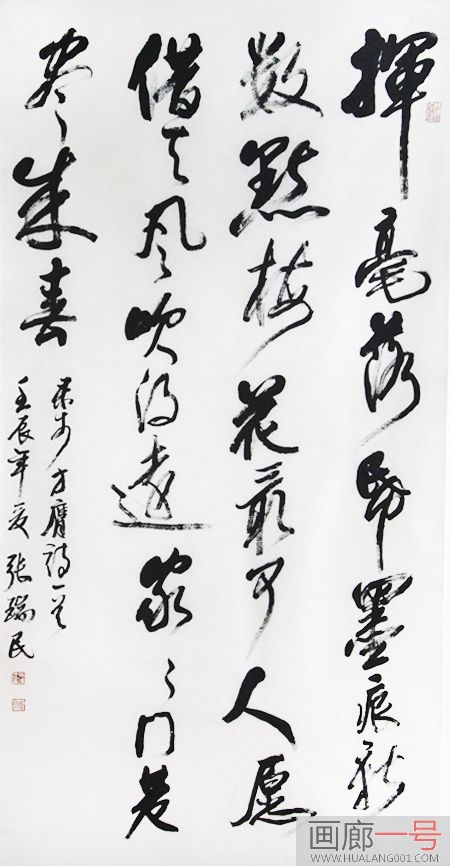 揮毫落帋墨痕新
数點梅花最可人愿
借天风吹得遠家々门巷
尽成春
录李方膺诗一首
壬辰年夏张瑞民
画廊一号
WWW.HUALANG001.COM